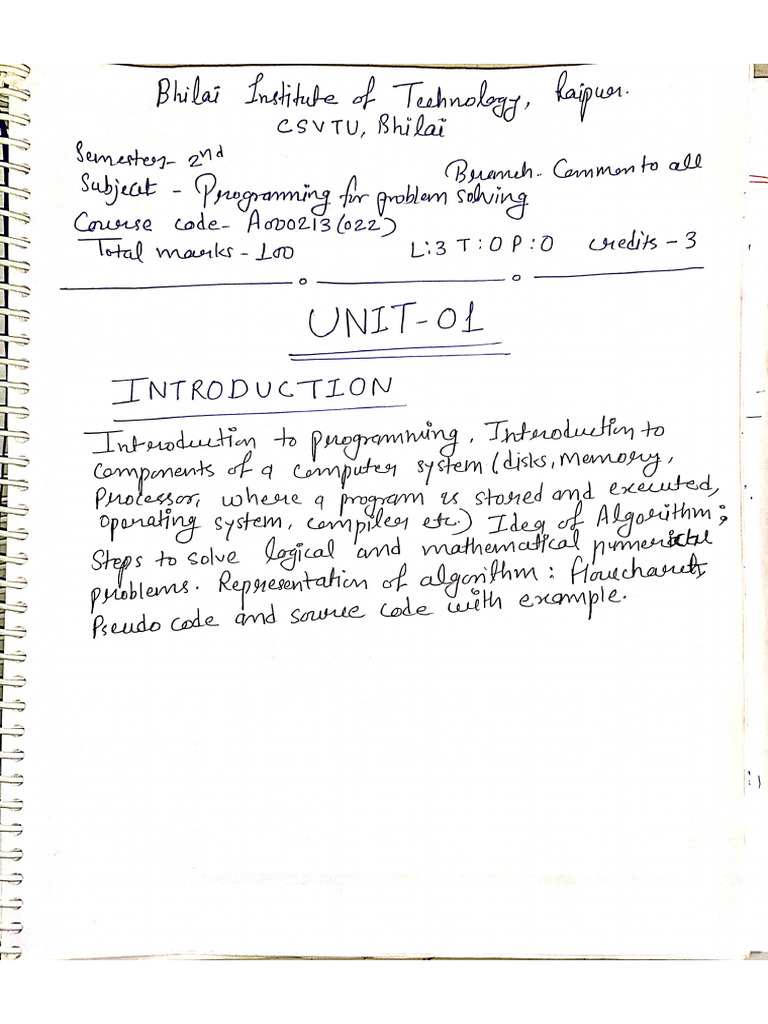 Bhilai Institute of Technology, Raipur.
CSVTU, Bhilai
Semester- 2nd
Branch- Common to all
Subject - Programming for problem solving
Course code- A000213(022)
Total marks - 100 L:3 T:0 P:0 credits - 3
UNIT-01
INTRODUCTION
Introduction to programming, Introduction to
components of a computer system (disks, Memory,
Processor, where a program is stored and executed,
Operating system, compiler etc.) Idea of Algorithm;
Steps to solve logical and mathematical numerical
problems. Representation of algorithm: flowchart,
Pseudo code and source code with example.